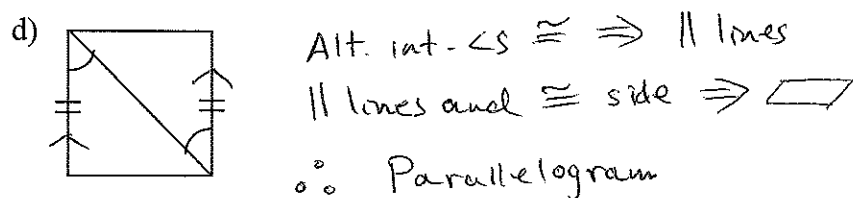 d)
Alt. int. <s ≅ ⇒ || lines
|| lines and ≅ side ⇒ ▱
∴ Parallelogram